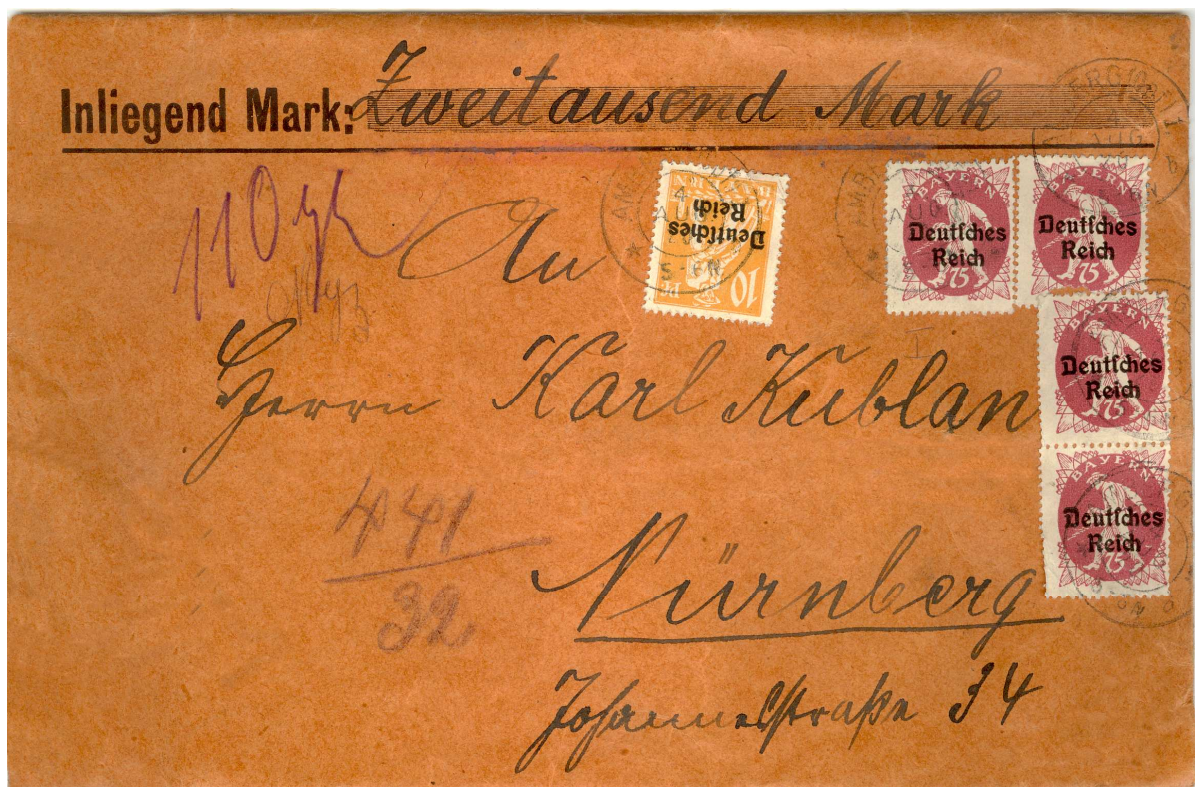 Inliegend Mark: Zweitausend Mark
110 gr
An
Herrn Karl Kublan
Nürnberg
Johannesstraße 34
441
32
BAYERN
Deutsches
Reich
10 Pf
AUG
5-6N
BAYERN
Deutsches
Reich
75
BAYERN
Deutsches
Reich
75
BAYERN
Deutsches
Reich
75
BAYERN
Deutsches
Reich
75
I